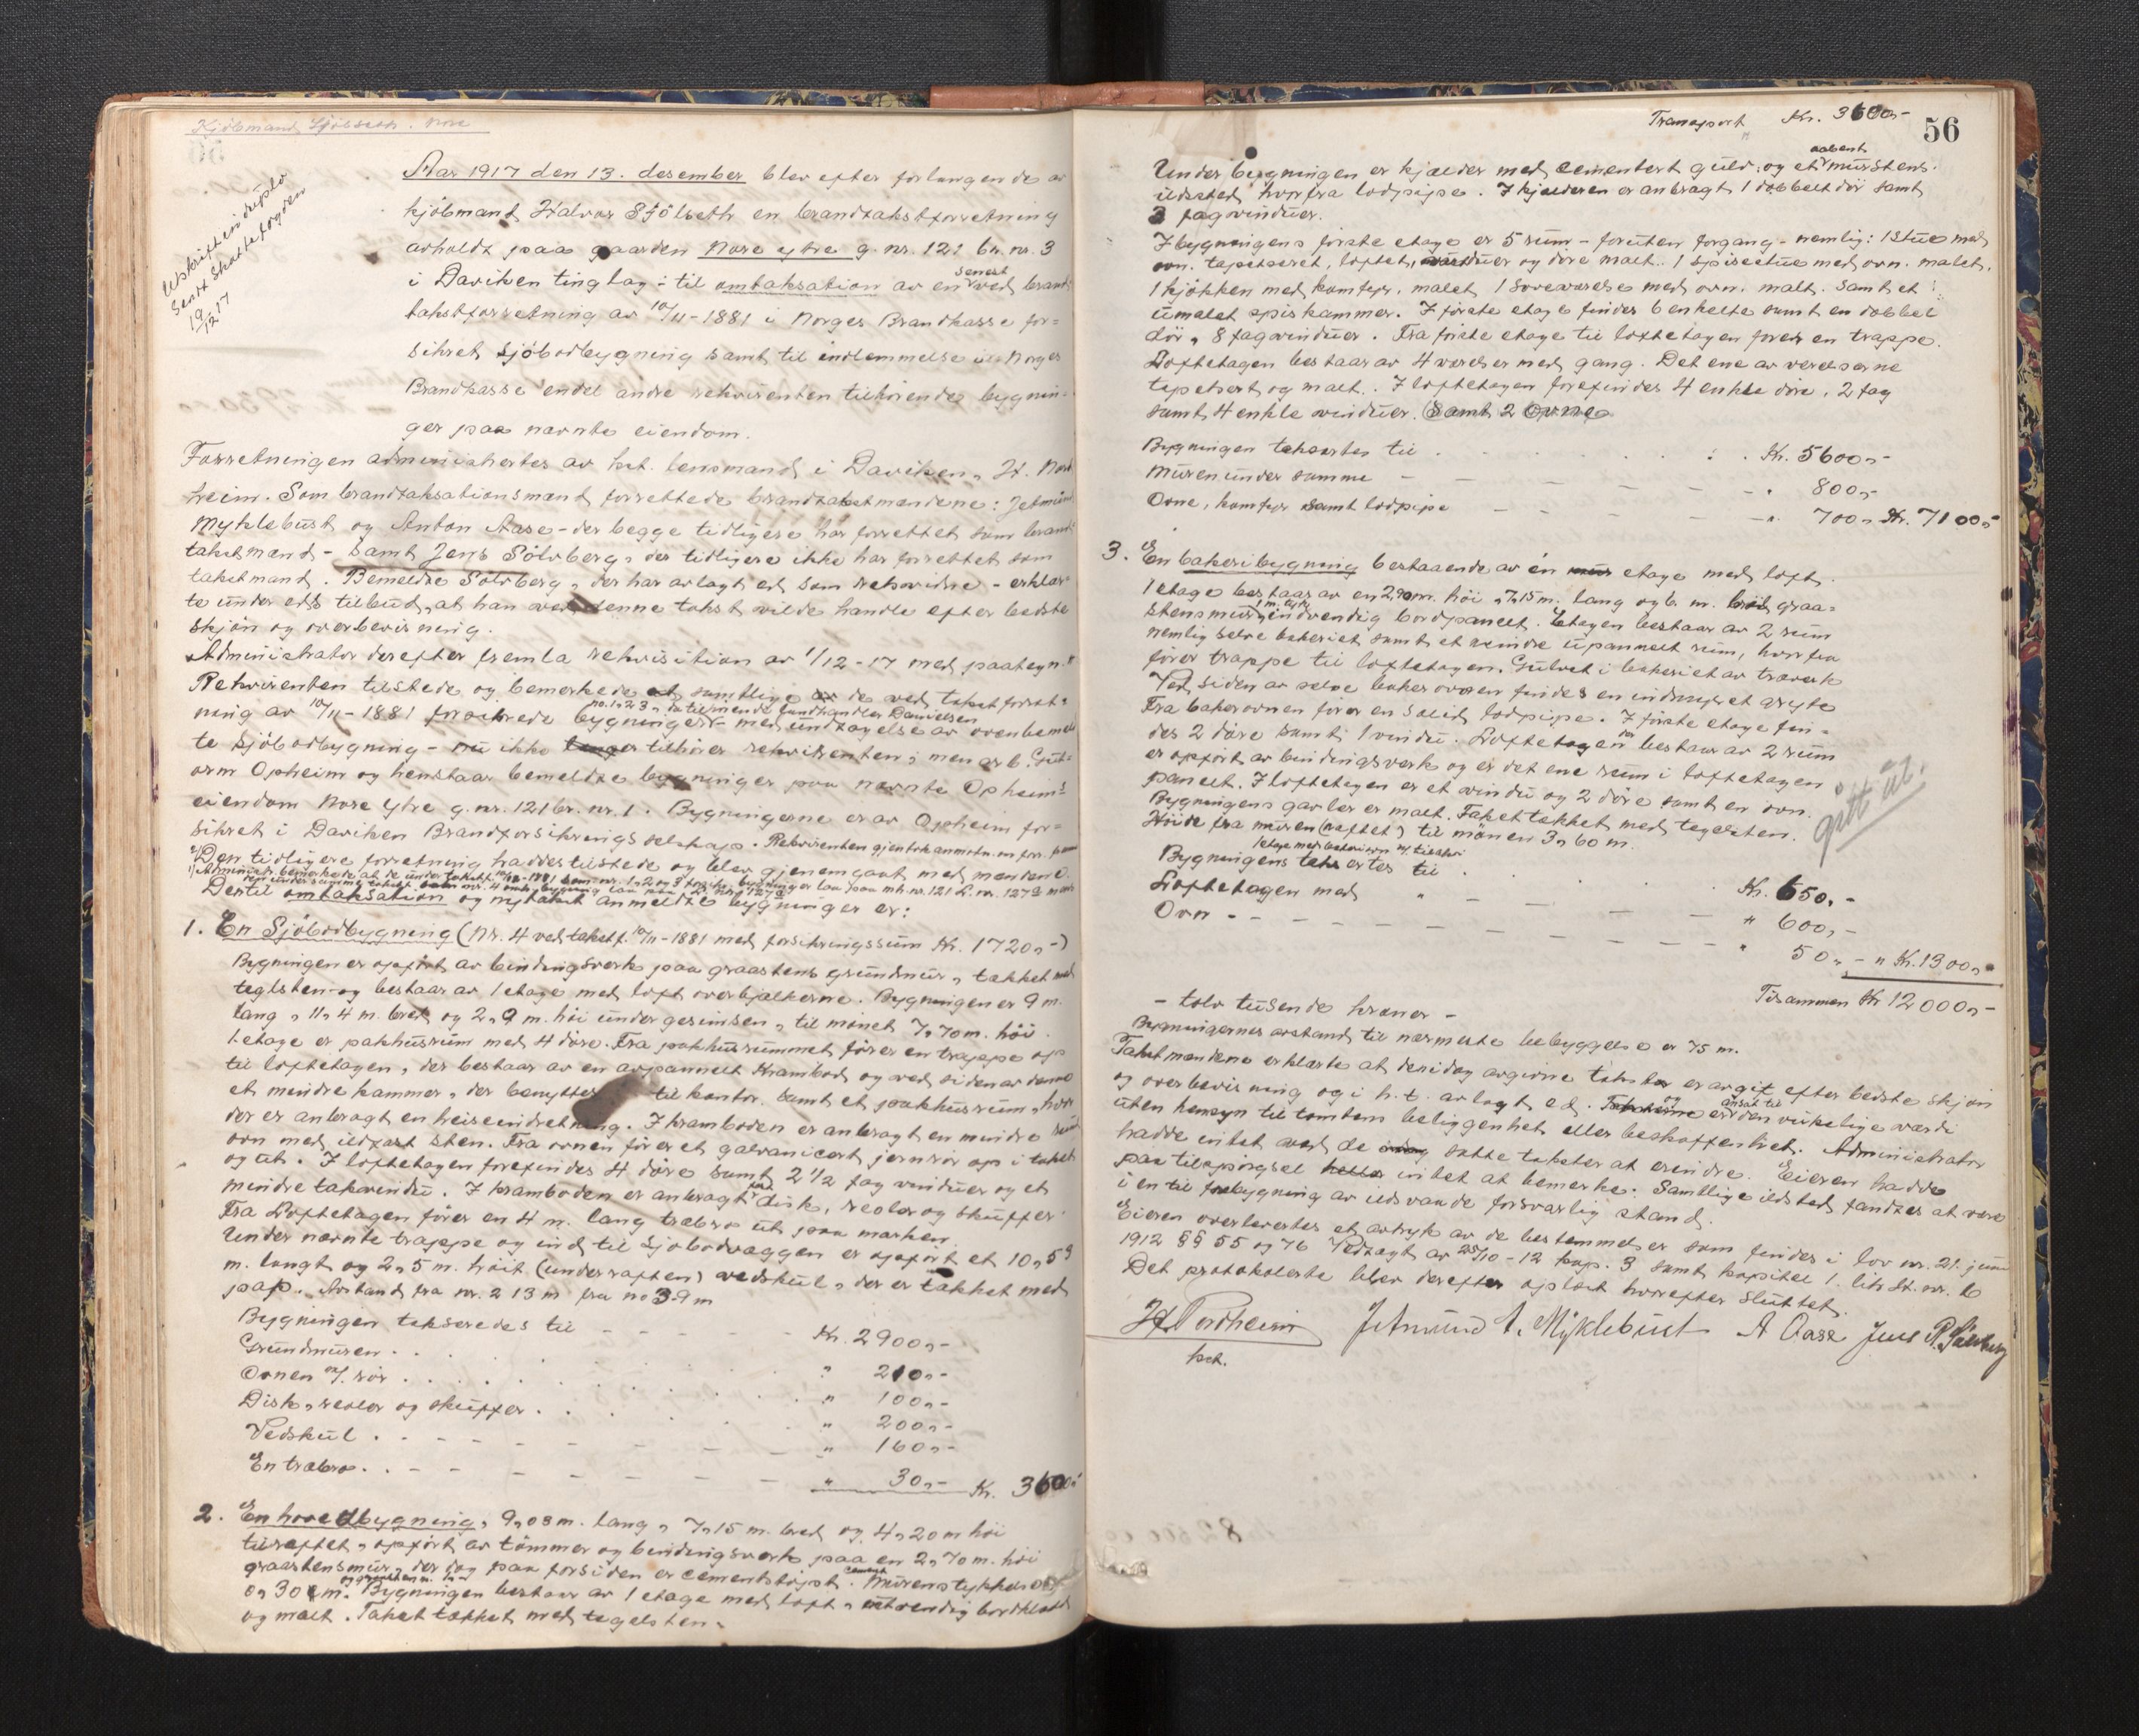 Kjøbmand Sjölseth. Nore
Utskrift in duplo
Sendt Skattefogden
19/12 17
Aar 1917 den 13. desember blev efter forlangende av
kjöbmand Halvor Sjölseth en brandtakstforretning
avholdt paa gaarden Nore ytre g. nr. 121 br. nr. 3
i Daviken tinglag: til omtaksation av en senest ved brand-
takstforretning av 10/11-1881 i Norges Brandkasse for-
sikret sjöbodbygning samt til indlemmelse i Norges
Brandkasse endel andre rekvirenten tilhörende bygnin-
ger paa nævnte eiendom.
Forretningen administrertes av kst. lensmand i Daviken, H. Nord
heim. Som brandtaksationsmænd forrettede brandtakstmændene: Jetmund
Myklebust og Anton Aase - der begge tidligere har forrettet som brand-
takstmænd - samt Jens Sölvberg, der tidligere ikke har forrettet som
takstmand. Bemeldte Sölvberg, der har avlagt ed som rekvidne - erklær-
te under eds tilbud, at han ved denne takst vilde handle efter bedste
skjön og overbevisning.
Administrator derefter fremla rekvisition av 1/12-17 med paategn.
Rekvirenten tilstede og bemerkede at samtlige de ved takstforret-
ning av 10/11-1881 forsikrede bygninger no. 1, 2, 3, tilhörende landhandler Danielsen - med undtagelse av ovenbemeld
te sjöbodbygning - nu ikke tilhörer rekvirenten; men G. Gut-
orm Opheim og henstaar bemeldte bygninger paa nævnte Opheims
eiendom Nore ytre g. nr. 121 br. nr. 1. Bygningerne er av Opheim for-
sikret i Daviken Brandforsikringsselskap. Rekvirenten gjentok anmodn. om
Den tidligere forretning haddes tilstede og blev gjennemgaat med mændene.
Dertil omtaksation og nytakst anmeldte bygninger er:
1. En Sjöbodbygning (Nr. 4 ved takstf. 10/11-1881 med forsikringssum Kr. 1720,-)
Bygningen er opfört av bindingsverk paa graastens grundmur, takket med
teglsten og bestaar av 1 etage med loft over bjælkerne. Bygningen er 9 m.
lang, 11,4 m. bred og 2,9 m. höi under gesimsen, til mönet 7,70 m. höi.
1. etage er pakhusrum med 4 döre. Fra pakhusrummet förer en trappe op
til loftetagen, der bestaar av en avpannelt Krambod og ved siden av denne
et mindre kammer, der benyttes til kontor. Samt et pakhusrum, hvor
der er anbragt en heiseindretning. I kramboden er anbragt en mindre rund
ovn med ildfast sten. Fra ovnen förer et galvanicert jernrör op i taket
og ut. I loftetagen forefindes 4 döre samt 2 1/2 fag vinduer og et
mindre takvindu. I kramboden er anbragt disk, reoler og skuffer.
Fra Loftetagen förer en 4 m. lang træbro ut paa marken.
Under nævnte trappe og ind til sjöbodvæggen er opfört et 10,59
m. langt og 2,5 m. höit (under raften) vedskul, der er takket med
pap. Avstand fra nr. 2 13 m fra no 3 9 m
Bygningen takseredes til - - - - Kr. 2900,-
Grundmuren . . . . . " 210,-
Ovnen m/ rör . . . . . " 100,-
Disk, reoler og skuffer . . . . " 200,-
Vedskul . - - - - " 160,-
En træbro . . - - - - " 30,- Kr. 3600,-
2. En hovedbygning, 9,08 m. lang, 7,15 m. bred og 4,20 m höi
til raftet, opfört av tömmer og bindingsverk paa en 2,70 m. höi
graastensmur, der dog paa forsiden er cementstöpt. Murens tykkelse
0,30 cm. Bygningen bestaar av 1 etage med loft, utvendig bordklædd
og malt. Taket tækket med tegelsten.
56
Transport Kr. 3600,-
Under bygningen er kjælder med cementert gulv, og et aabent murstens
ildsted, hvorfra lodpipe. I kjælderen er anbragt 1 dobbelt dör samt
3 fagvinduer.
I bygningens förste etage er 5 rum - foruten forgang - nemlig: 1 stue med
ovn. tapetseret, loftet, vinduer og döre malt. 1 spisestue med ovn. malet,
1 kjökken med komfyr. malet 1 soveværelse med ovn. malt. samt et
umalet spiskammer. I förste etage findes 6 enkelte samt en dobbel
dör, 8 fagvinduer. Fra förste etage til loftetagen förer en trappe.
Loftetagen bestaar av 4 værelser med gang. Det ene av værelserne
tapetsert og malt. I loftetagen forefindes 4 enkle döre, 2 fag
samt 4 enkle vinduer. Samt 2 Ovne
Bygningen taksertes til . . . . . Kr. 5600,-
Muren under samme - - - - " 800,-
Ovne, komfyr samt lodpipe - - - - " 700,- Kr. 7100,-
3. En bakeribygning bestaaende av én etage med loft.
1 etage bestaar av en 2,90 m. höi, 7,15 m. lang og 6 m. bred graa-
stensmur, 1 m. tyk, indvendig bordpanelt. Etagen bestaar av 2 rum
nemlig selve bakeriet samt et mindre upannelt rum, hvorfra
förer trappe til loftetagen. Gulvet i bakeriet av træverk
Ved siden av selve bakerovnen findes en indmuret gryte
Fra bakerovnen förer en solid lodpipe. I förste etage fin-
des 2 döre samt 1 vindu. Loftetagen der bestaar av 2 rum
er opfört av bindingsverk og er det ene rum i loftetagen
panelt. I loftetagen er et vindu og 2 döre samt en ovn.
Bygningens gavler er malt. Taket tækket med tegelsten.
Höide fra muren (raftet) til mönen 3,60 m.
gått ut.
Bygningens 1 etage med bakerovn m/ tilbehör taksertes til . . . Kr. 650,-
Loftetagen med " - - - " 600,-
Ovn - - - - - " 50,- " Kr. 1300,-
Tilsammen Kr 12000,-
- tolv tusende kroner -
Bygningernes avstand til nærmeste bebyggelse er 75 m.
Takstmændene erklærte at den idag avgivne takst er avgit efter bedste skjön
og overbevisning og i h. t. avlagt ed. og er ansat til den virkelige værdi
uten hensyn til tomtens beliggenhet eller beskaffenhet. Administrator
hadde intet ved de satte takster at erindre. Eieren hadde
paa tilspörgsel intet at bemerke. Samtlige ildsted fandtes at være
i en til forebygning av ildsvaade forsvarlig stand.
Eieren overlevertes et avtryk av de bestemmelser som findes i lov nr. 21. juni
1912 §§ 55 og 76 Vedtægt av 25/10-12 kap. 3 samt kapitel 1. litr. H. nr. 6
Det protokollerte blev derefter oplæst hvorefter sluttet.
H Nordheim Jetmund A. Myklebust A Aase Jens P. Sölvberg
kst.